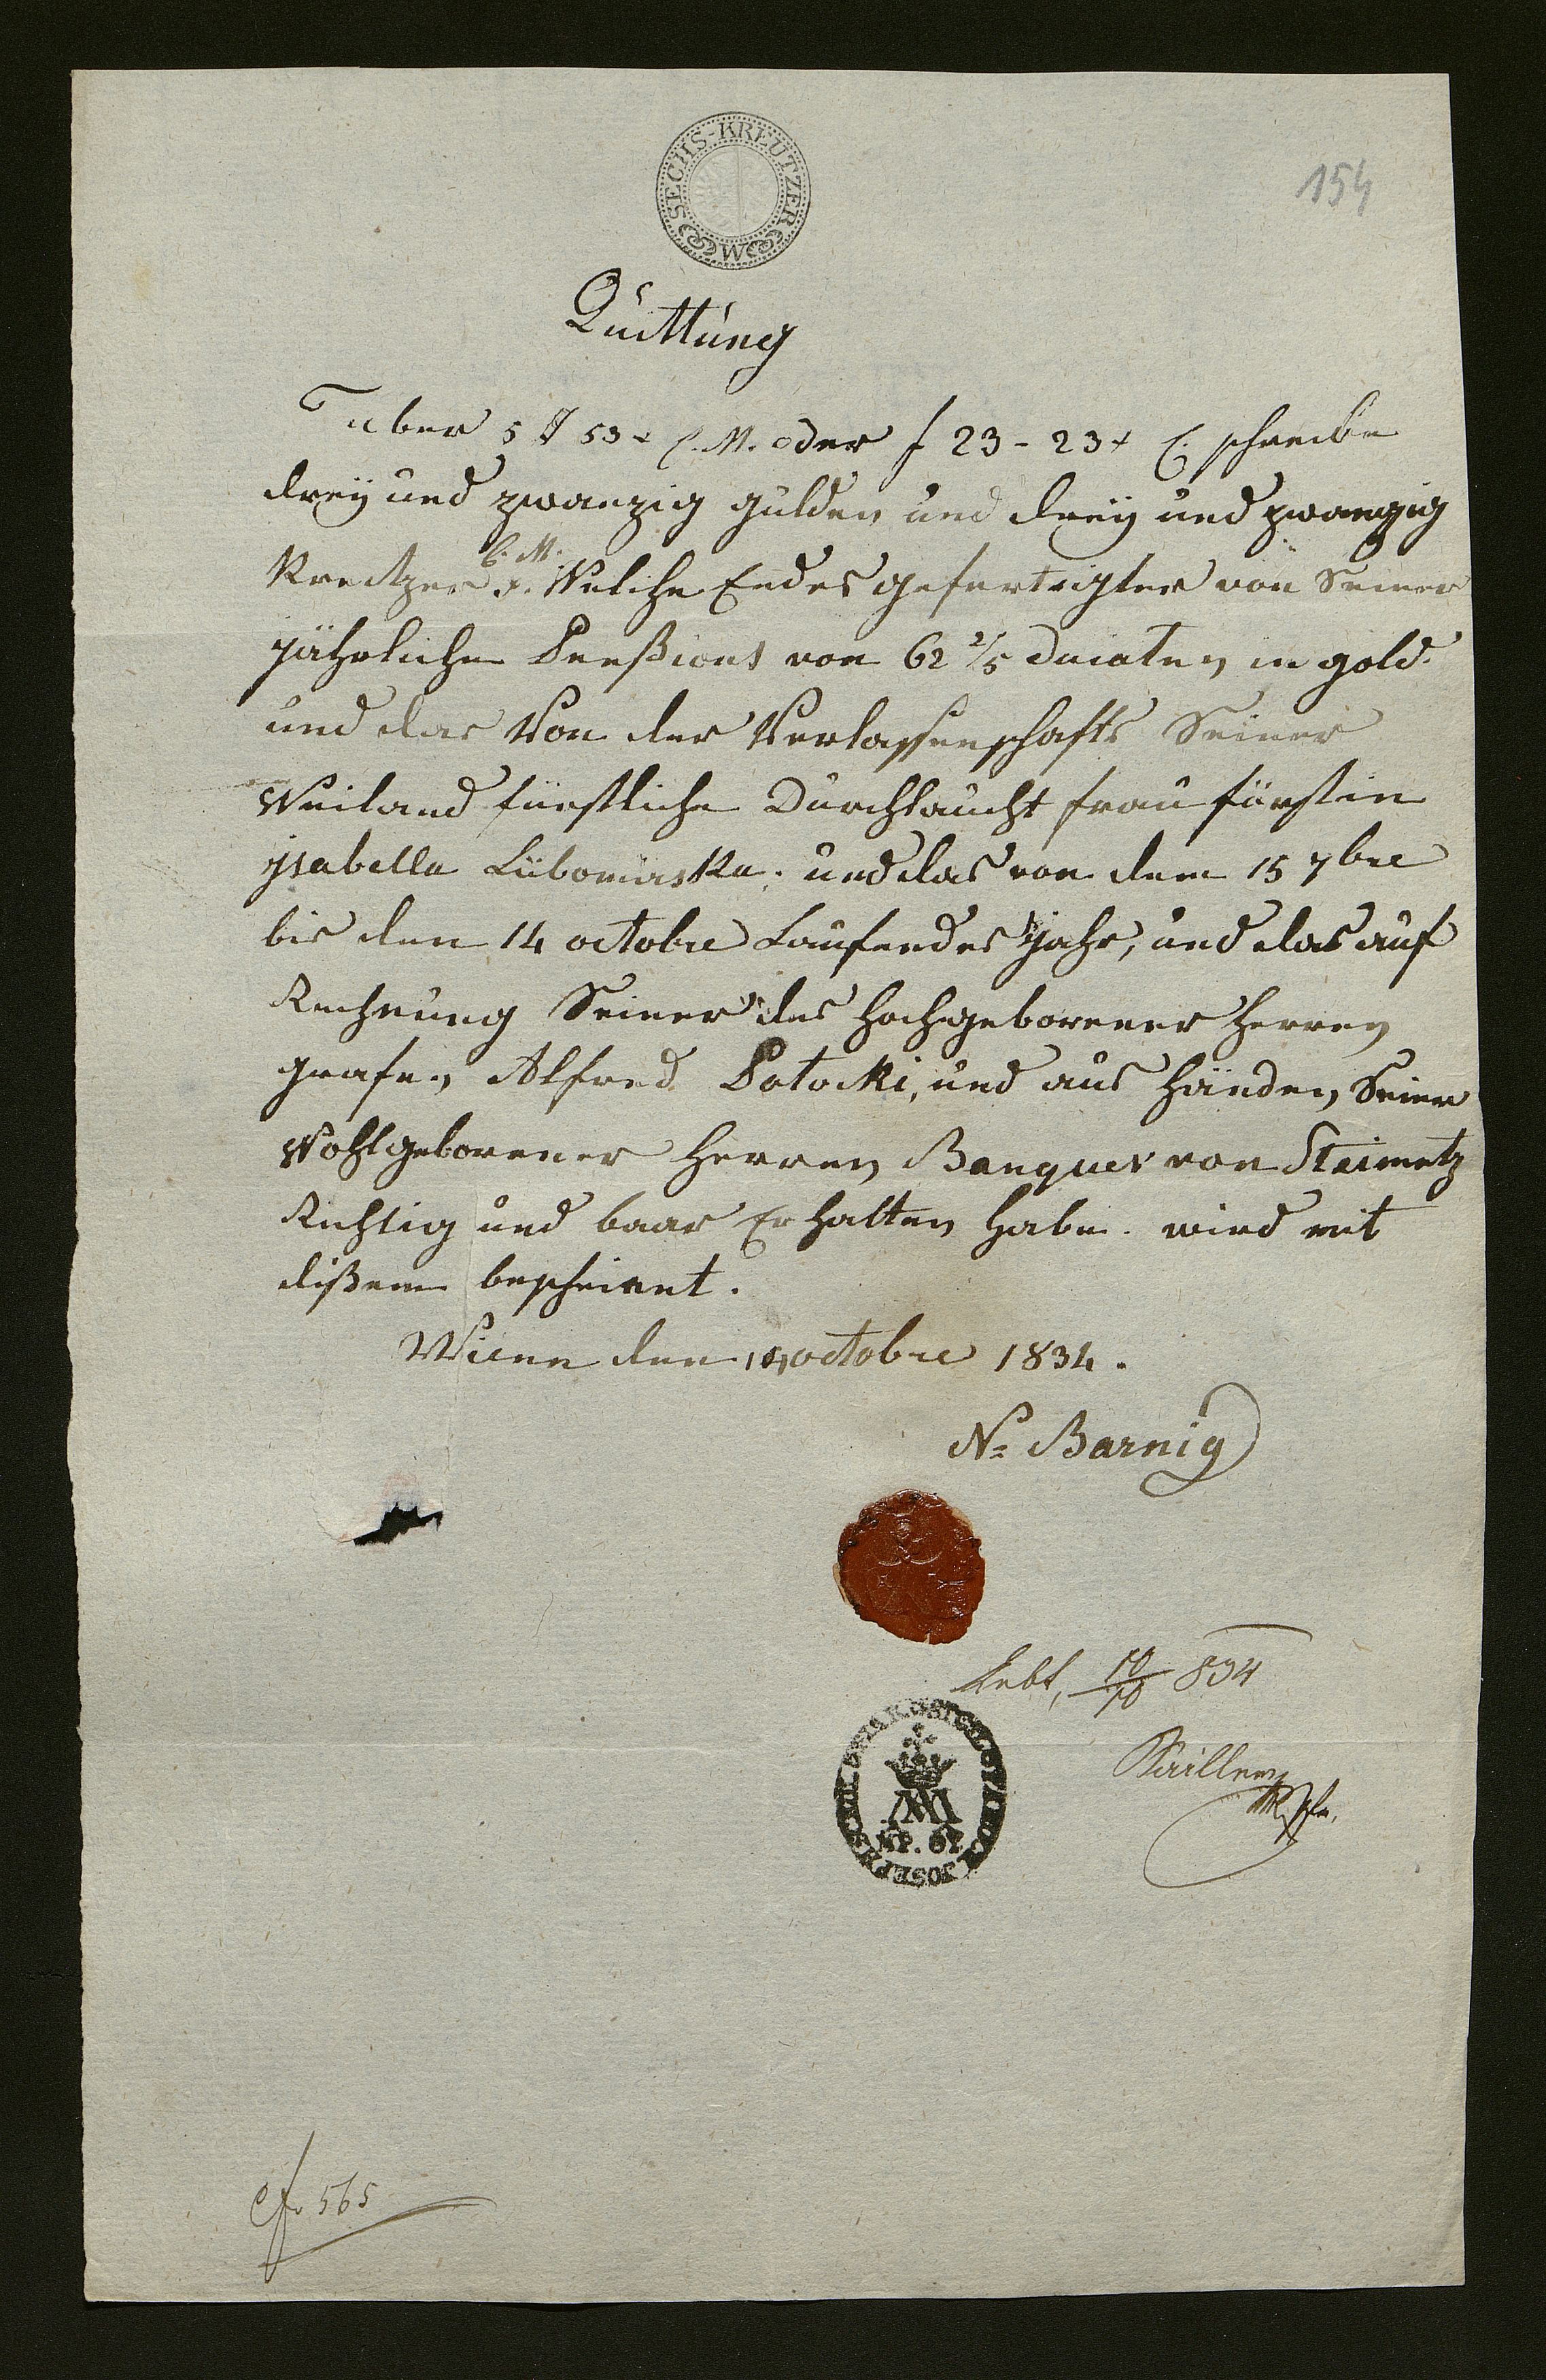 SECHS-KREUTZER
WM
154
Quittung
Über 5 # 53 x C.M. oder f 23-23 x C. schreibe
dreÿ und zwanzig gulden und dreÿ und zwanzig
C.M.
Kreitzer Welche Endes gefertrigter von Seiner
jährlichen Penßions von 62 2/5 ducaten in gold
und das Von der Verlassenschafts Seiner
Weiland fürstliche Durchlaucht frau fürstin
ysabella Lübomirska. und das von dem 15 7bre
bis den 14 octobre Laufendes jahr, und das auf
Rechnung Seiner des hochgeborener Herren
grafen Alfred Potocki, und aus händen Seiner
Wohlgeborener Herren Banquer von Steimetz
Richtig und baar Erhalten habe. wird mit
dißem bescheinet.
Wienn den 14 octobre 1834.
N= Barnig
Lebt, 834
NR. 61
JOSEPH
565